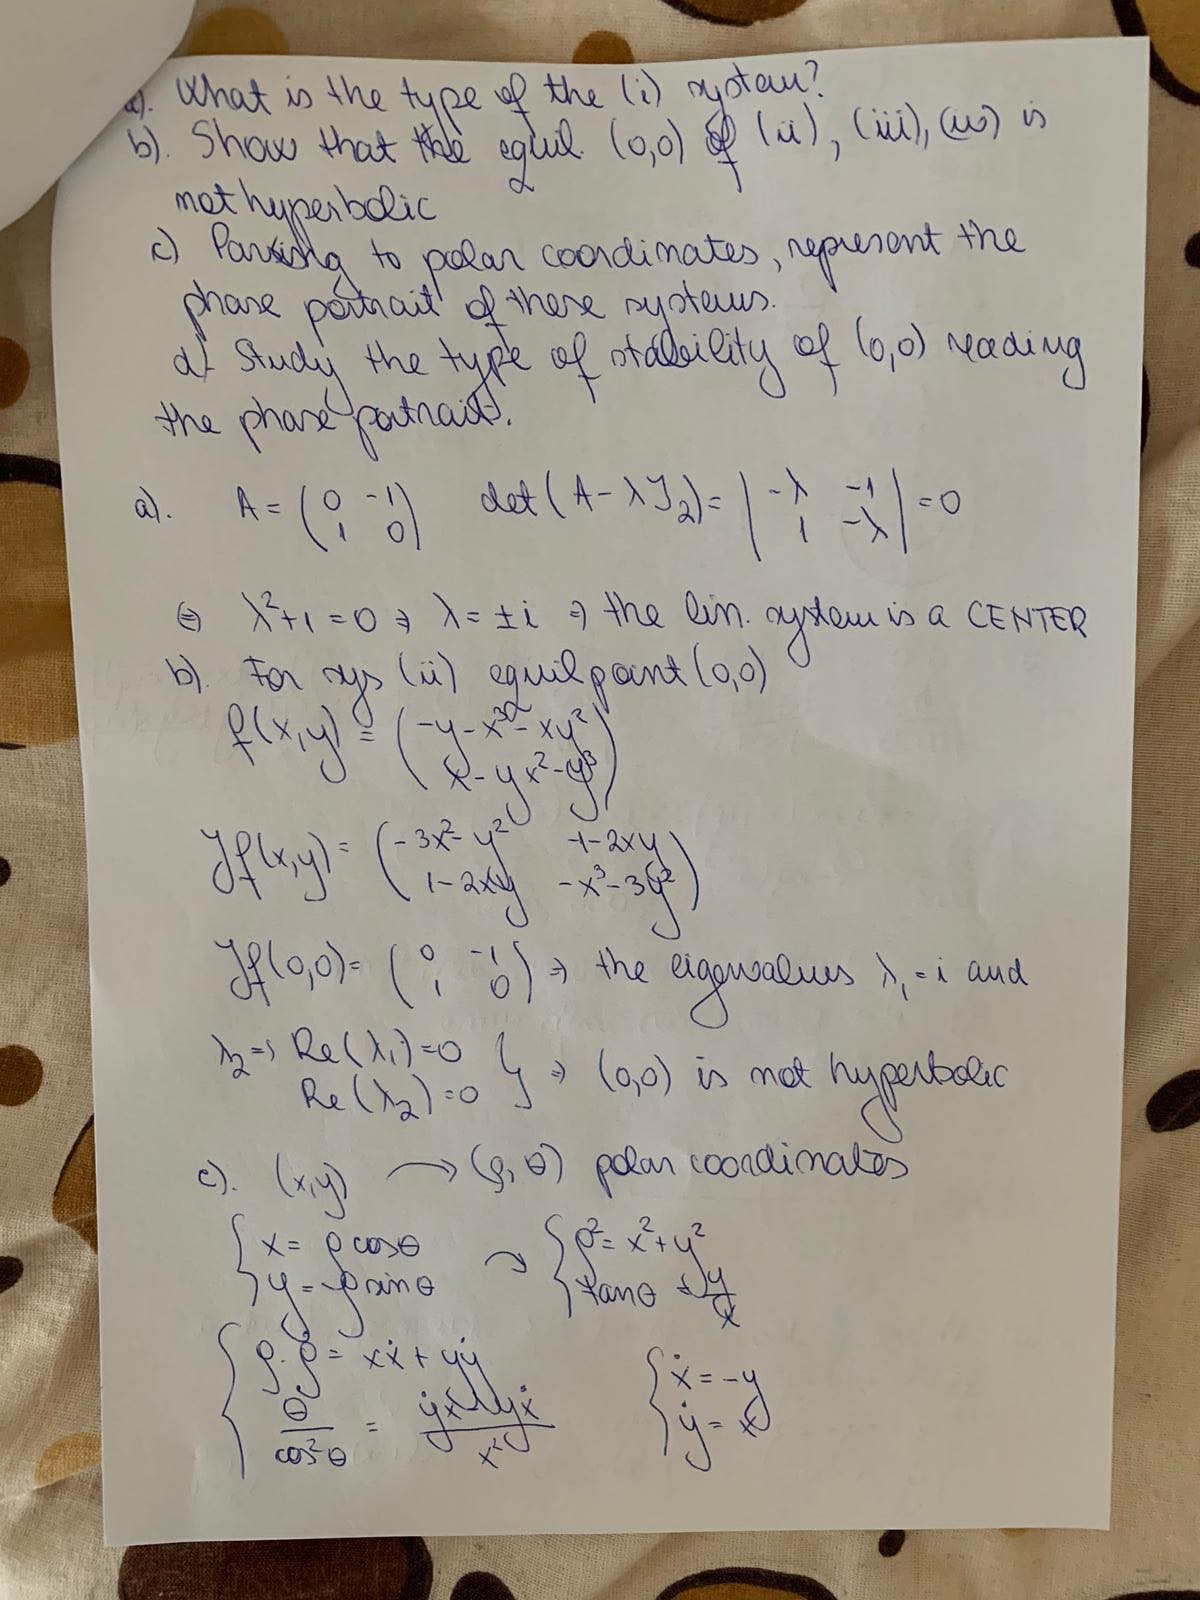 a). What is the type of the (i) system?
b). Show that the equil. (0,0) of (ii), (iii), (iv) is
not hyperbolic
c) Passing to polar coordinates, represent the
phase portrait of these systems.
d) Study the type of stability of (0,0) reading
the phase portraits.
a). A = (0 -1; 1 0) det(A-λI₂) = |-λ -1; 1 -λ| = 0
⇔ λ²+1=0 ⇒ λ=±i ⇒ the lin. system is a CENTER
b). For sys (ii) equil point (0,0)
f(x,y) = (-y-x³-xy²; x-yx²-y³)
Jf(x,y) = (-3x²-y² -1-2xy; 1-2xy -x³-3y²)
Jf(0,0) = (0 -1; 1 0) ⇒ the eigenvalues λ₁=i and
λ₂ ⇒ Re(λ₁)=0
Re(λ₂)=0 } ⇒ (0,0) is not hyperbolic
c). (x,y) → (ρ,θ) polar coordinates
{ x = ρcosθ
y = ρsinθ → { ρ² = x²+y²
tanθ = y/x
{ ρ·ρ̇ = xẋ + yẏ
θ̇/cos²θ = (ẏx-yẋ)/x² { ẋ = -y
ẏ = x